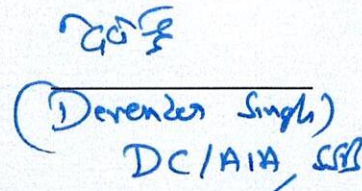 (Devender Singh)
DC/AIA, SSB